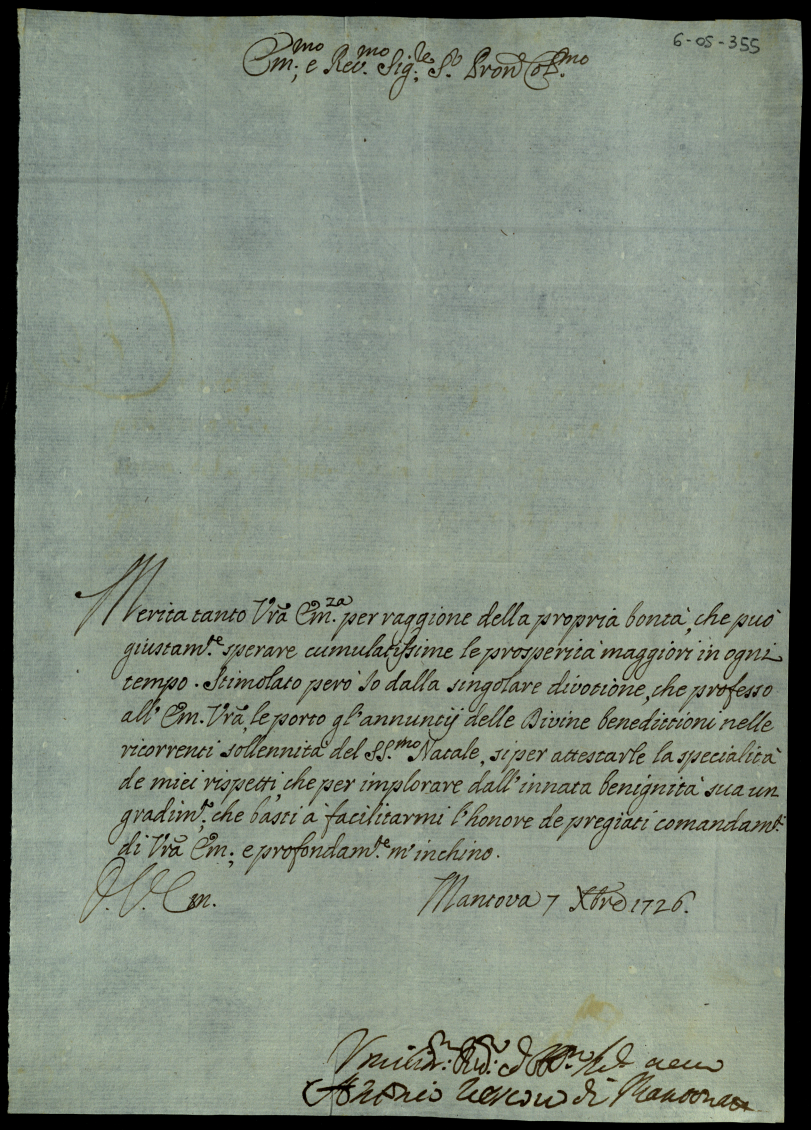 6-05-355
Em.mo e Rev.mo Sig.re S.r Pron Col.mo
Merita tanto Vrã Em.za per raggione della propria bontà, che può
giustam.te sperare cumulatissime le prosperità maggiori in ogni
tempo. Stimolato però Io dalla singolare divotione, che professo
all' Em. Vrã, le porto gl' annuntij delle Divine benedittioni nelle
ricorrenti sollennità del SS.mo Natale, sì per attestarle la specialità
de miei rispetti, che per implorare dall' innata benignità sua un
gradim.to, che basti à facilitarmi l' honore de pregiati comandam.ti
di Vrã Em.; e profondam.te m' inchino.
D. V. Em.
Mantova 7 Xbre 1726.
Antonio Vescovo di Mantova